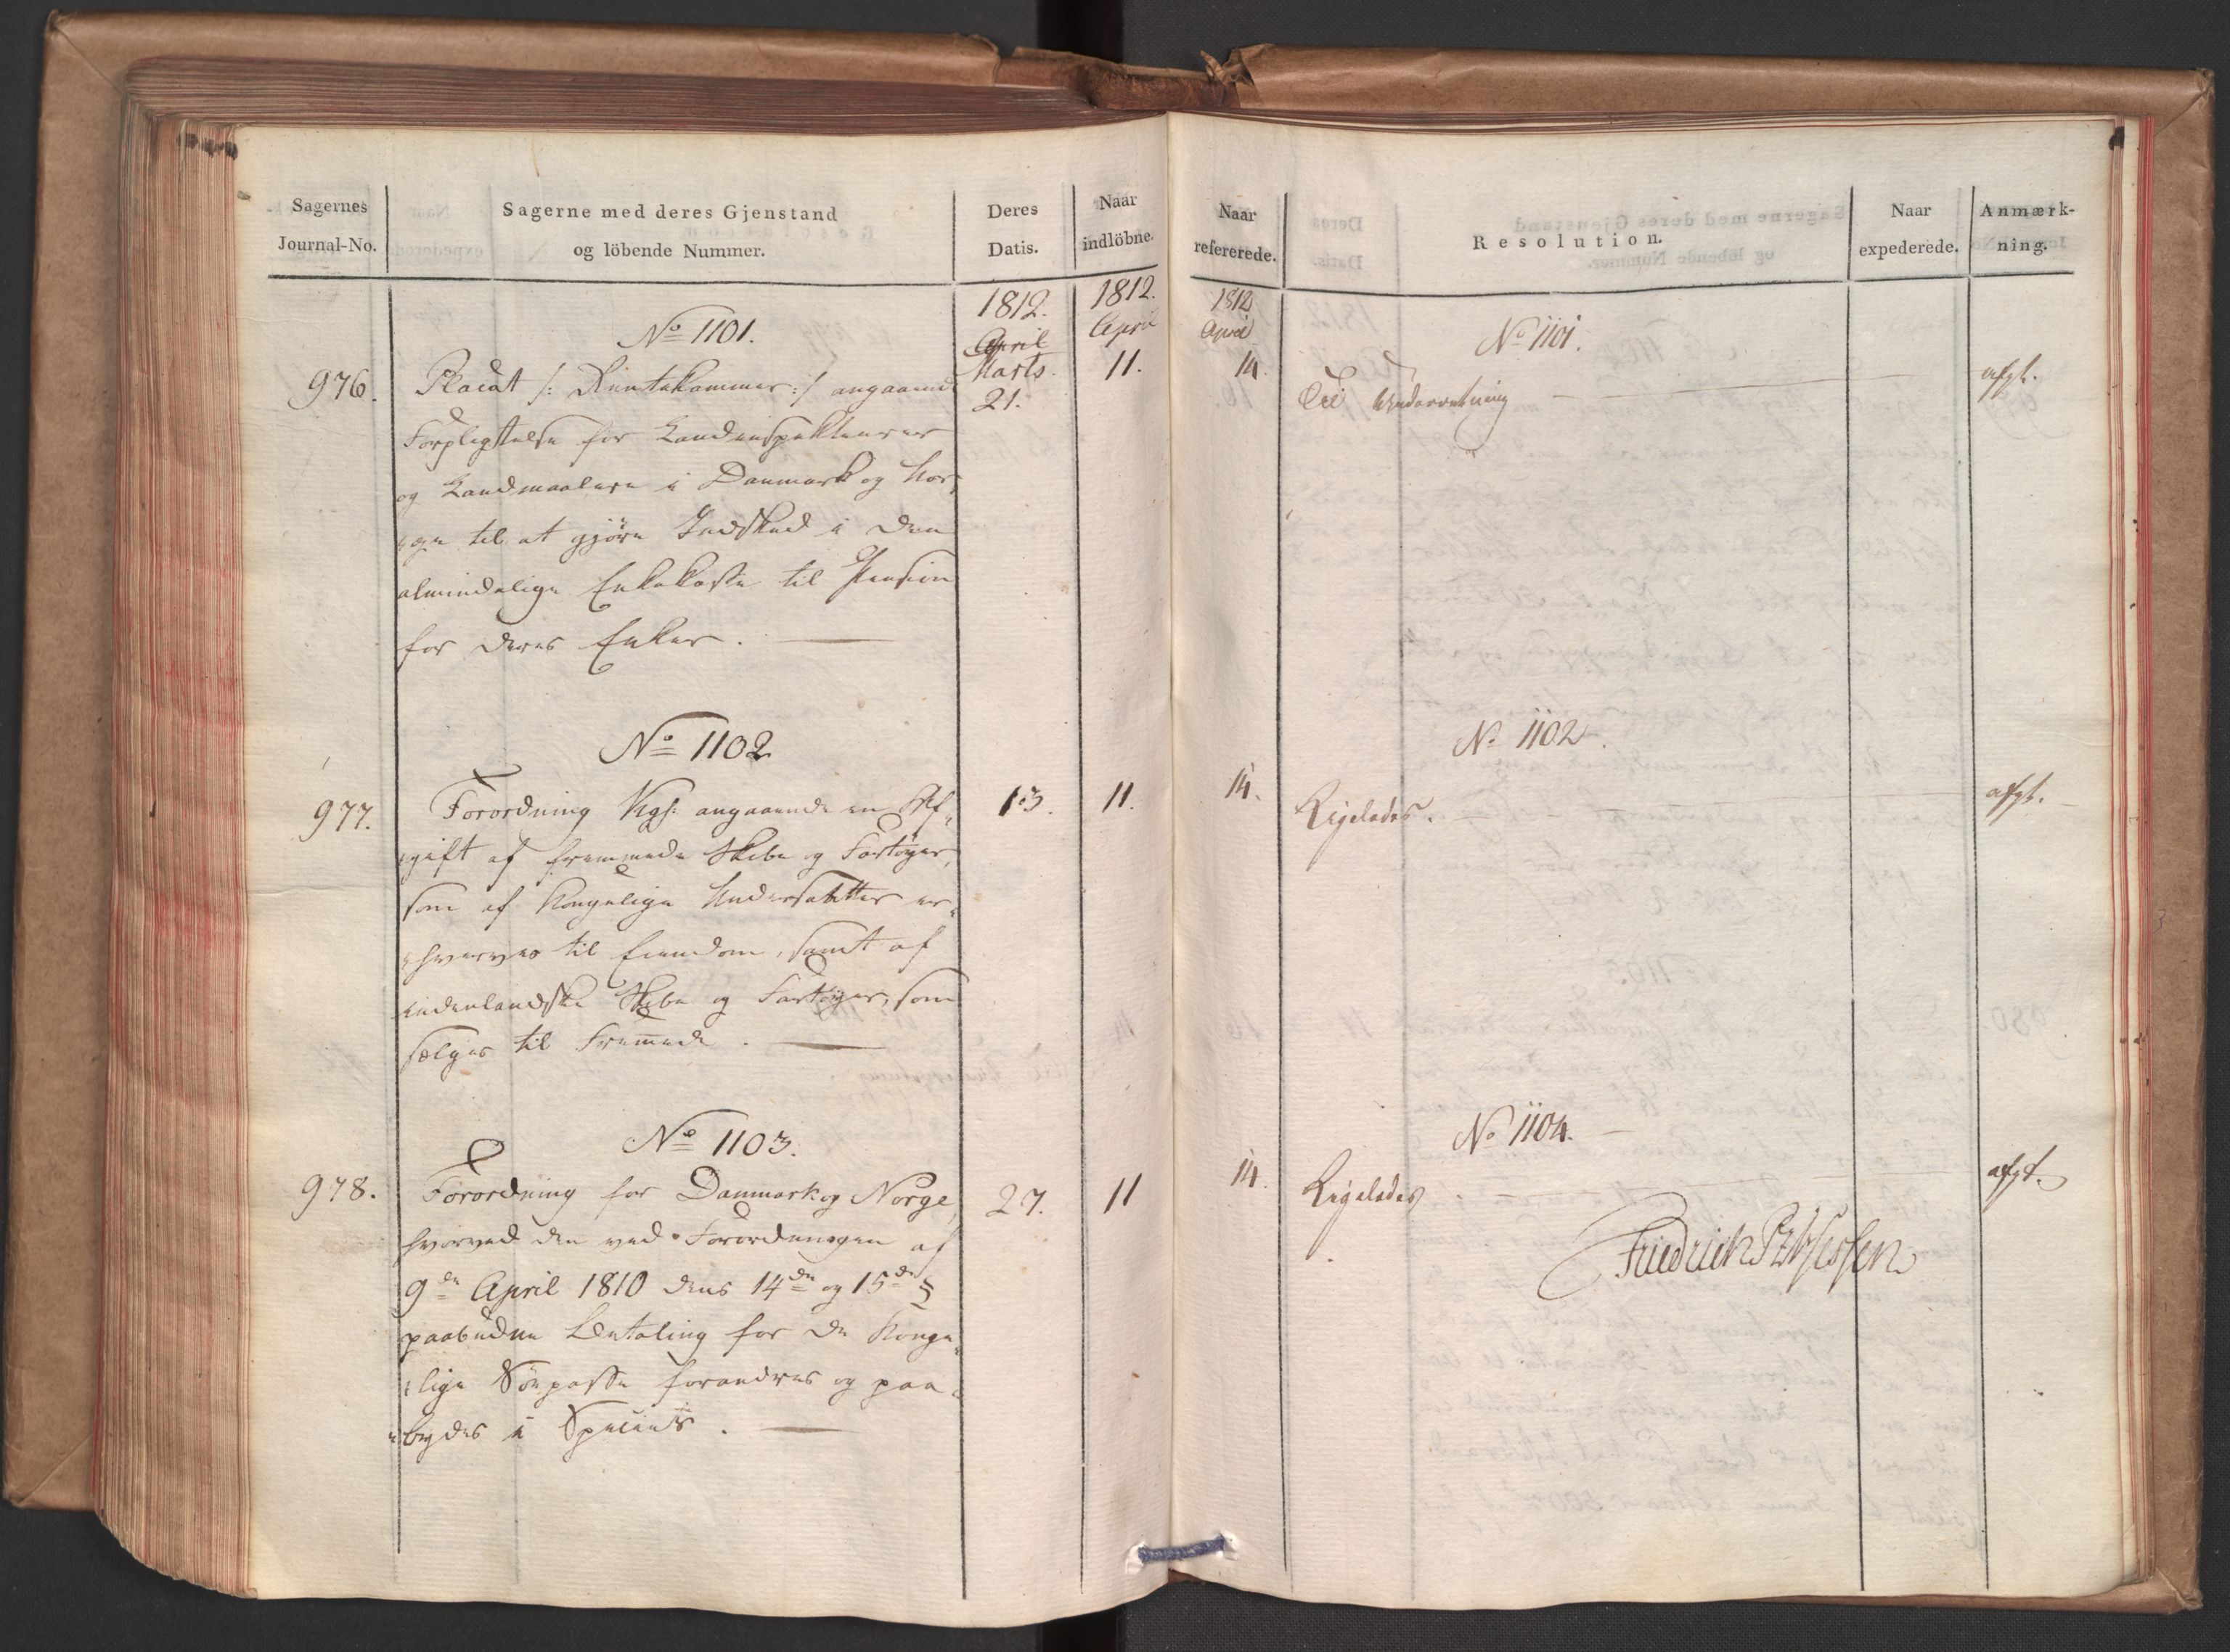 Sagernes
Journal-No.
Sagerne med deres Gjenstand
og löbende Nummer.
Deres
Datis.
Naar
indlöbne.
1812.
April
Marts.
21.
1812.
April
11.
No 1101.
976.
Placat /: Rentekammer :/ angaaende
Forpligtelse for Landinspekteurer
og Landmaalere i Danmark og Nor,
,ge til at gjöre Indskud i den
almindelige Enkekasse til Pension
for deres Enker. —
No 1102
977.
Forordning Kgh: angaaende en Af,
,gift af fremmede Skibe og Fartøyer,
som af Kongelige Undersaatter er,
,hverves til Eiendom, samt af
indenlandske Skibe og Fartøyer, som
sælges til Fremede. —
13.
11.
No 1103.
978.
Forordning for Danmark og Norge,
hvorved den ved Forordningen af
9de April 1810 dens 14de og 15de §
paabudne Betaling for de Konge,
,lige Söepasse forandres og paa,
,bydes i Species. —
27.
11
Naar
refererede.
Resolution.
Naar
expederede.
Anmærk-
ning.
1812
April
14.
No 1101.
Til Underretning —
afgt.
No 1102.
14.
Ligeledes. —
afgt.
No 1104.
14.
Ligeledes. —
afgt.